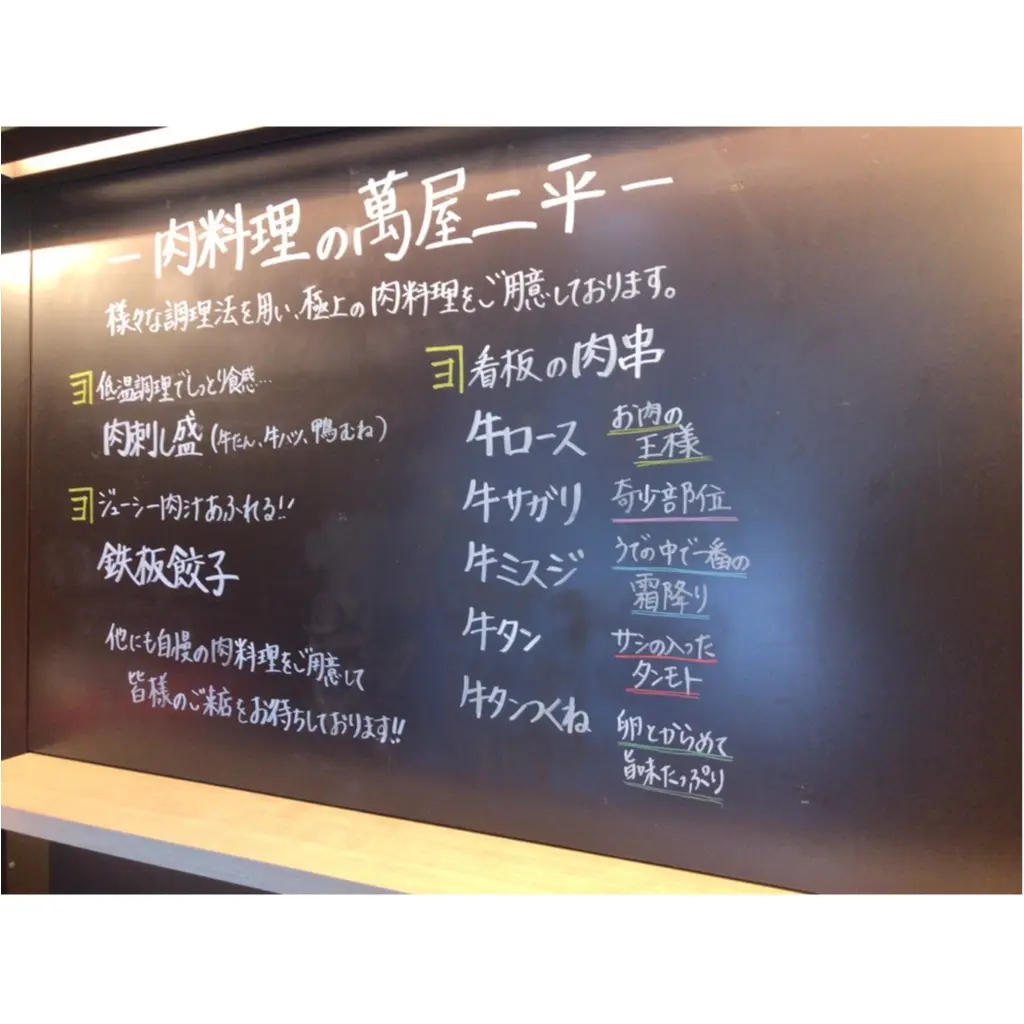 －肉料理の萬屋二平－
様々な調理法を用い、極上の肉料理をご用意しております。
ヨ 低温調理でしっとり食感…
肉刺し盛（牛たん、牛ハツ、鴨むね）
ヨ ジューシー肉汁あふれる!!
鉄板餃子
他にも自慢の肉料理をご用意して
皆様のご来店をお待ちしております!!
ヨ 看板の肉串
牛ロース
お肉の
王様
牛サガリ
奇少部位
牛ミスジ
うでの中で一番の
霜降り
牛タン
サシの入った
タンモト
牛タンつくね
卵とからめて
旨味たっぷり